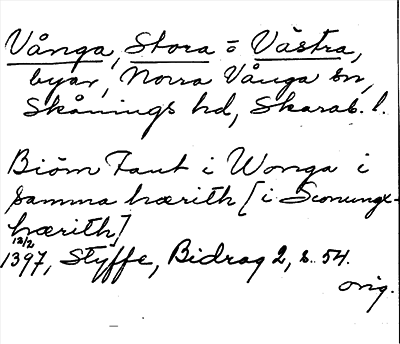 Vånga, Stora = Västra,
byar, Norra Vånga sn,
Skånings hd, Skarab. l.
Biörn Faut i Wonga i
samma hærith [i Sconungx-
hærith]
12/2
1397, Styffe, Bidrag 2, s. 54.
orig.